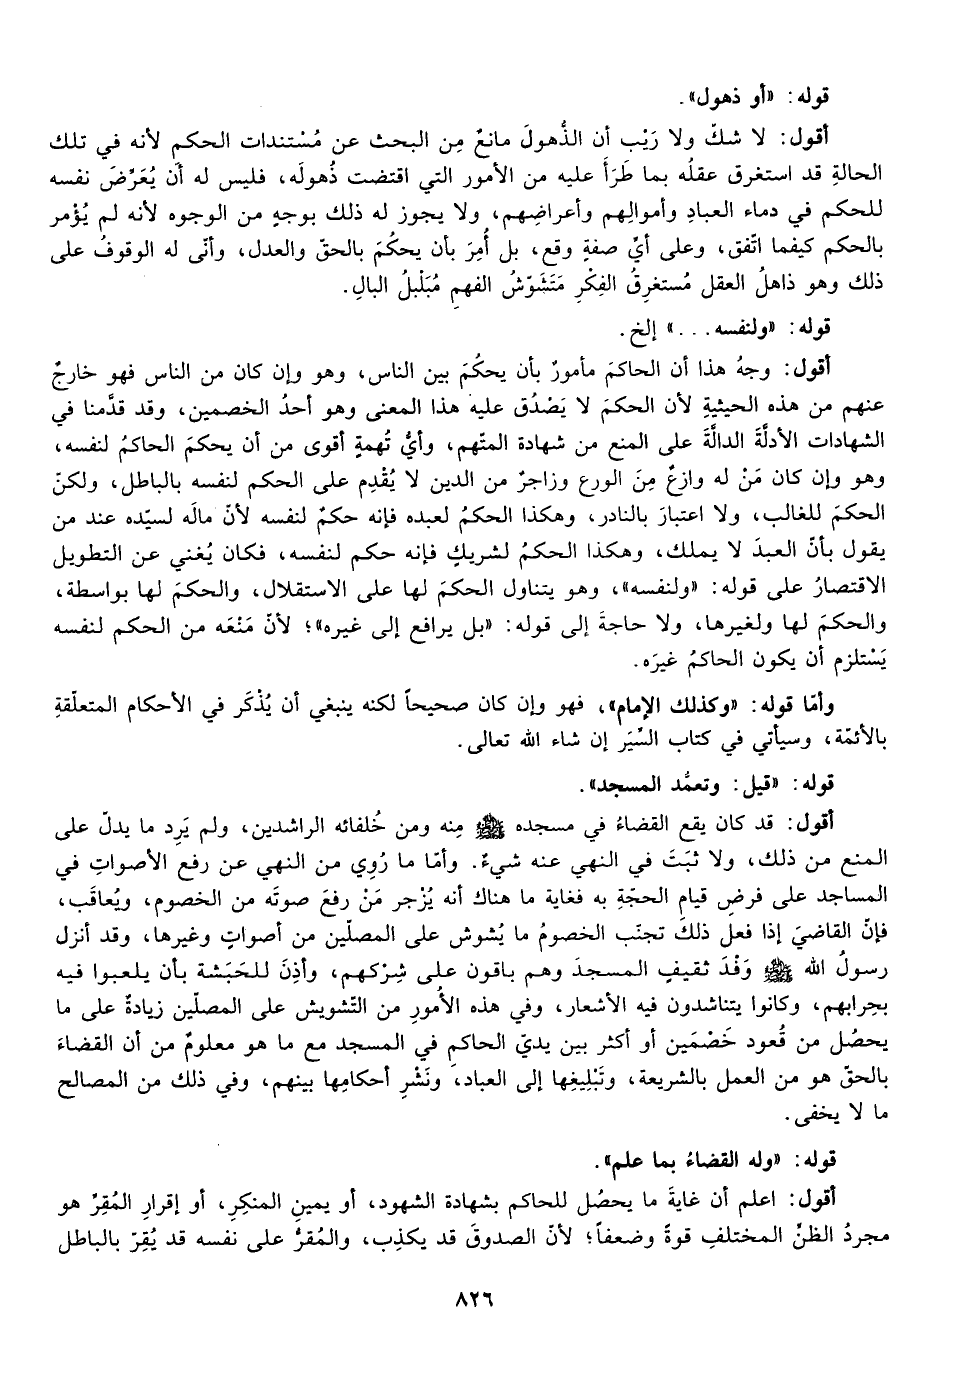 قوله: «أو ذهول».
أقول: لا شكّ ولا رَيْب أن الذُّهولَ مانعٌ مِن البحث عن مُسْتندات الحكم لأنه في تلك
الحالةِ قد استغرق عقلُه بما طَرَأَ عليه من الأمور التي اقتضت ذُهولَه، فليس له أن يُعَرِّضَ نفسه
للحكم في دماء العبادِ وأموالِهم وأعراضِهم، ولا يجوز له ذلك بوجهٍ من الوجوه لأنه لم يُؤمر
بالحكم كيفما اتّفق، وعلى أيِّ صفةٍ وقع، بل أُمِرَ بأن يحكُمَ بالحقّ والعدل، وأنّى له الوقوفُ على
ذلك وهو ذاهلُ العقل مُستغرِقُ الفِكْرِ مَتَشَوّشُ الفهمِ مُبَلْبلُ البالِ.
قوله: «ولنفسه...» إلخ.
أقول: وجهُ هذا أن الحاكمَ مأمورٌ بأن يحكُمَ بين الناس، وهو وإن كان من الناس فهو خارجٌ
عنهم من هذه الحيثيةِ لأن الحكمَ لا يَصْدُق عليه هذا المعنى وهو أحدُ الخصمين، وقد قدَّمنا في
الشهادات الأدلَّةَ الدالَّةَ على المنع من شهادة المتّهم، وأيُّ تُهمةٍ أقوى من أن يحكمَ الحاكمُ لنفسه،
وهو وإن كان مَنْ له وازعٌ مِنَ الورع وزاجرٌ من الدين لا يُقْدِم على الحكم لنفسه بالباطل، ولكنّ
الحكمَ للغالب، ولا اعتبارَ بالنادر، وهكذا الحكمُ لعبده فإنه حكمٌ لنفسه لأنّ مالَه لسيّده عند من
يقول بأنّ العبدَ لا يملك، وهكذا الحكمُ لشريكٍ فإنه حكم لنفسه، فكان يُغني عن التطويل
الاقتصارُ على قوله: «ولنفسه»، وهو يتناول الحكمَ لها على الاستقلال، والحكمَ لها بواسطة،
والحكمَ لها ولغيرها، ولا حاجةَ إلى قوله: «بل يرافع إلى غيره»؛ لأنّ مَنْعَه من الحكم لنفسه
يَسْتلزم أن يكون الحاكمُ غيرَه.
وأمّا قوله: «وكذلك الإمام»، فهو وإن كان صحيحاً لكنه ينبغي أن يُذْكَر في الأحكام المتعلّقةِ
بالأئمّة، وسيأتي في كتاب السِّيَر إن شاء الله تعالى.
قوله: «قيل: وتعمُّد المسجد».
أقول: قد كان يقع القضاءُ في مسجده ﷺ مِنه ومن خُلفائه الراشدين، ولم يَرِد ما يدلّ على
المنع من ذلك، ولا ثبَتَ في النهي عنه شيءٌ. وأمّا ما رُوِي من النهي عن رفع الأصواتِ في
المساجد على فرضِ قيامِ الحجّةِ به فغاية ما هناك أنه يُزْجر مَنْ رفعَ صوتَه من الخصوم، ويُعاقَب،
فإنّ القاضيَ إذا فعلَ ذلكَ تجنّب الخصومُ ما يُشوش على المصلّين من أصواتٍ وغيرها، وقد أنزل
رسولُ الله ﷺ وَفْدَ ثقيفٍ المسجدَ وهم باقون على شِرْكهم، وأذِنَ للحَبَشة بأن يلعبوا فيه
بحِرابهم، وكانوا يتناشدون فيه الأشعار، وفي هذه الأُمورِ من التّشويش على المصلّين زيادةٌ على ما
يحصُل من قُعود خَصْمَين أو أكثر بين يديّ الحاكمِ في المسجد مع ما هو معلومٌ من أن القضاءَ
بالحقّ هو من العمل بالشريعة، وتَبْلِيغِها إلى العباد، ونَشْرِ أحكامِها بينهم، وفي ذلك من المصالح
ما لا يخفى.
قوله: «وله القضاءُ بما علم».
أقول: اعلم أن غايةَ ما يحصُل للحاكم بشهادة الشهود، أو يمينِ المنكِرِ، أو إقرارِ المُقِرِّ هو
مجردُ الظنِّ المختلفِ قوةً وضعفاً؛ لأنّ الصدوقَ قد يكذِب، والمُقرُّ على نفسه قد يُقِرّ بالباطل
٨٢٦